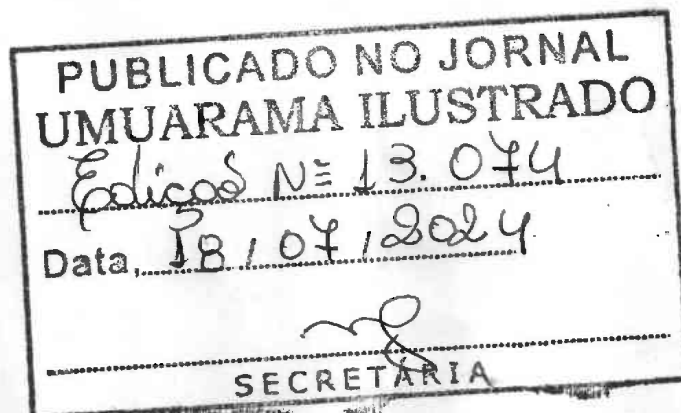 PUBLICADO NO JORNAL
UMUARAMA ILUSTRADO
Edição Nº 13.074
Data, 18 / 07 / 2024
SECRETÁRIA